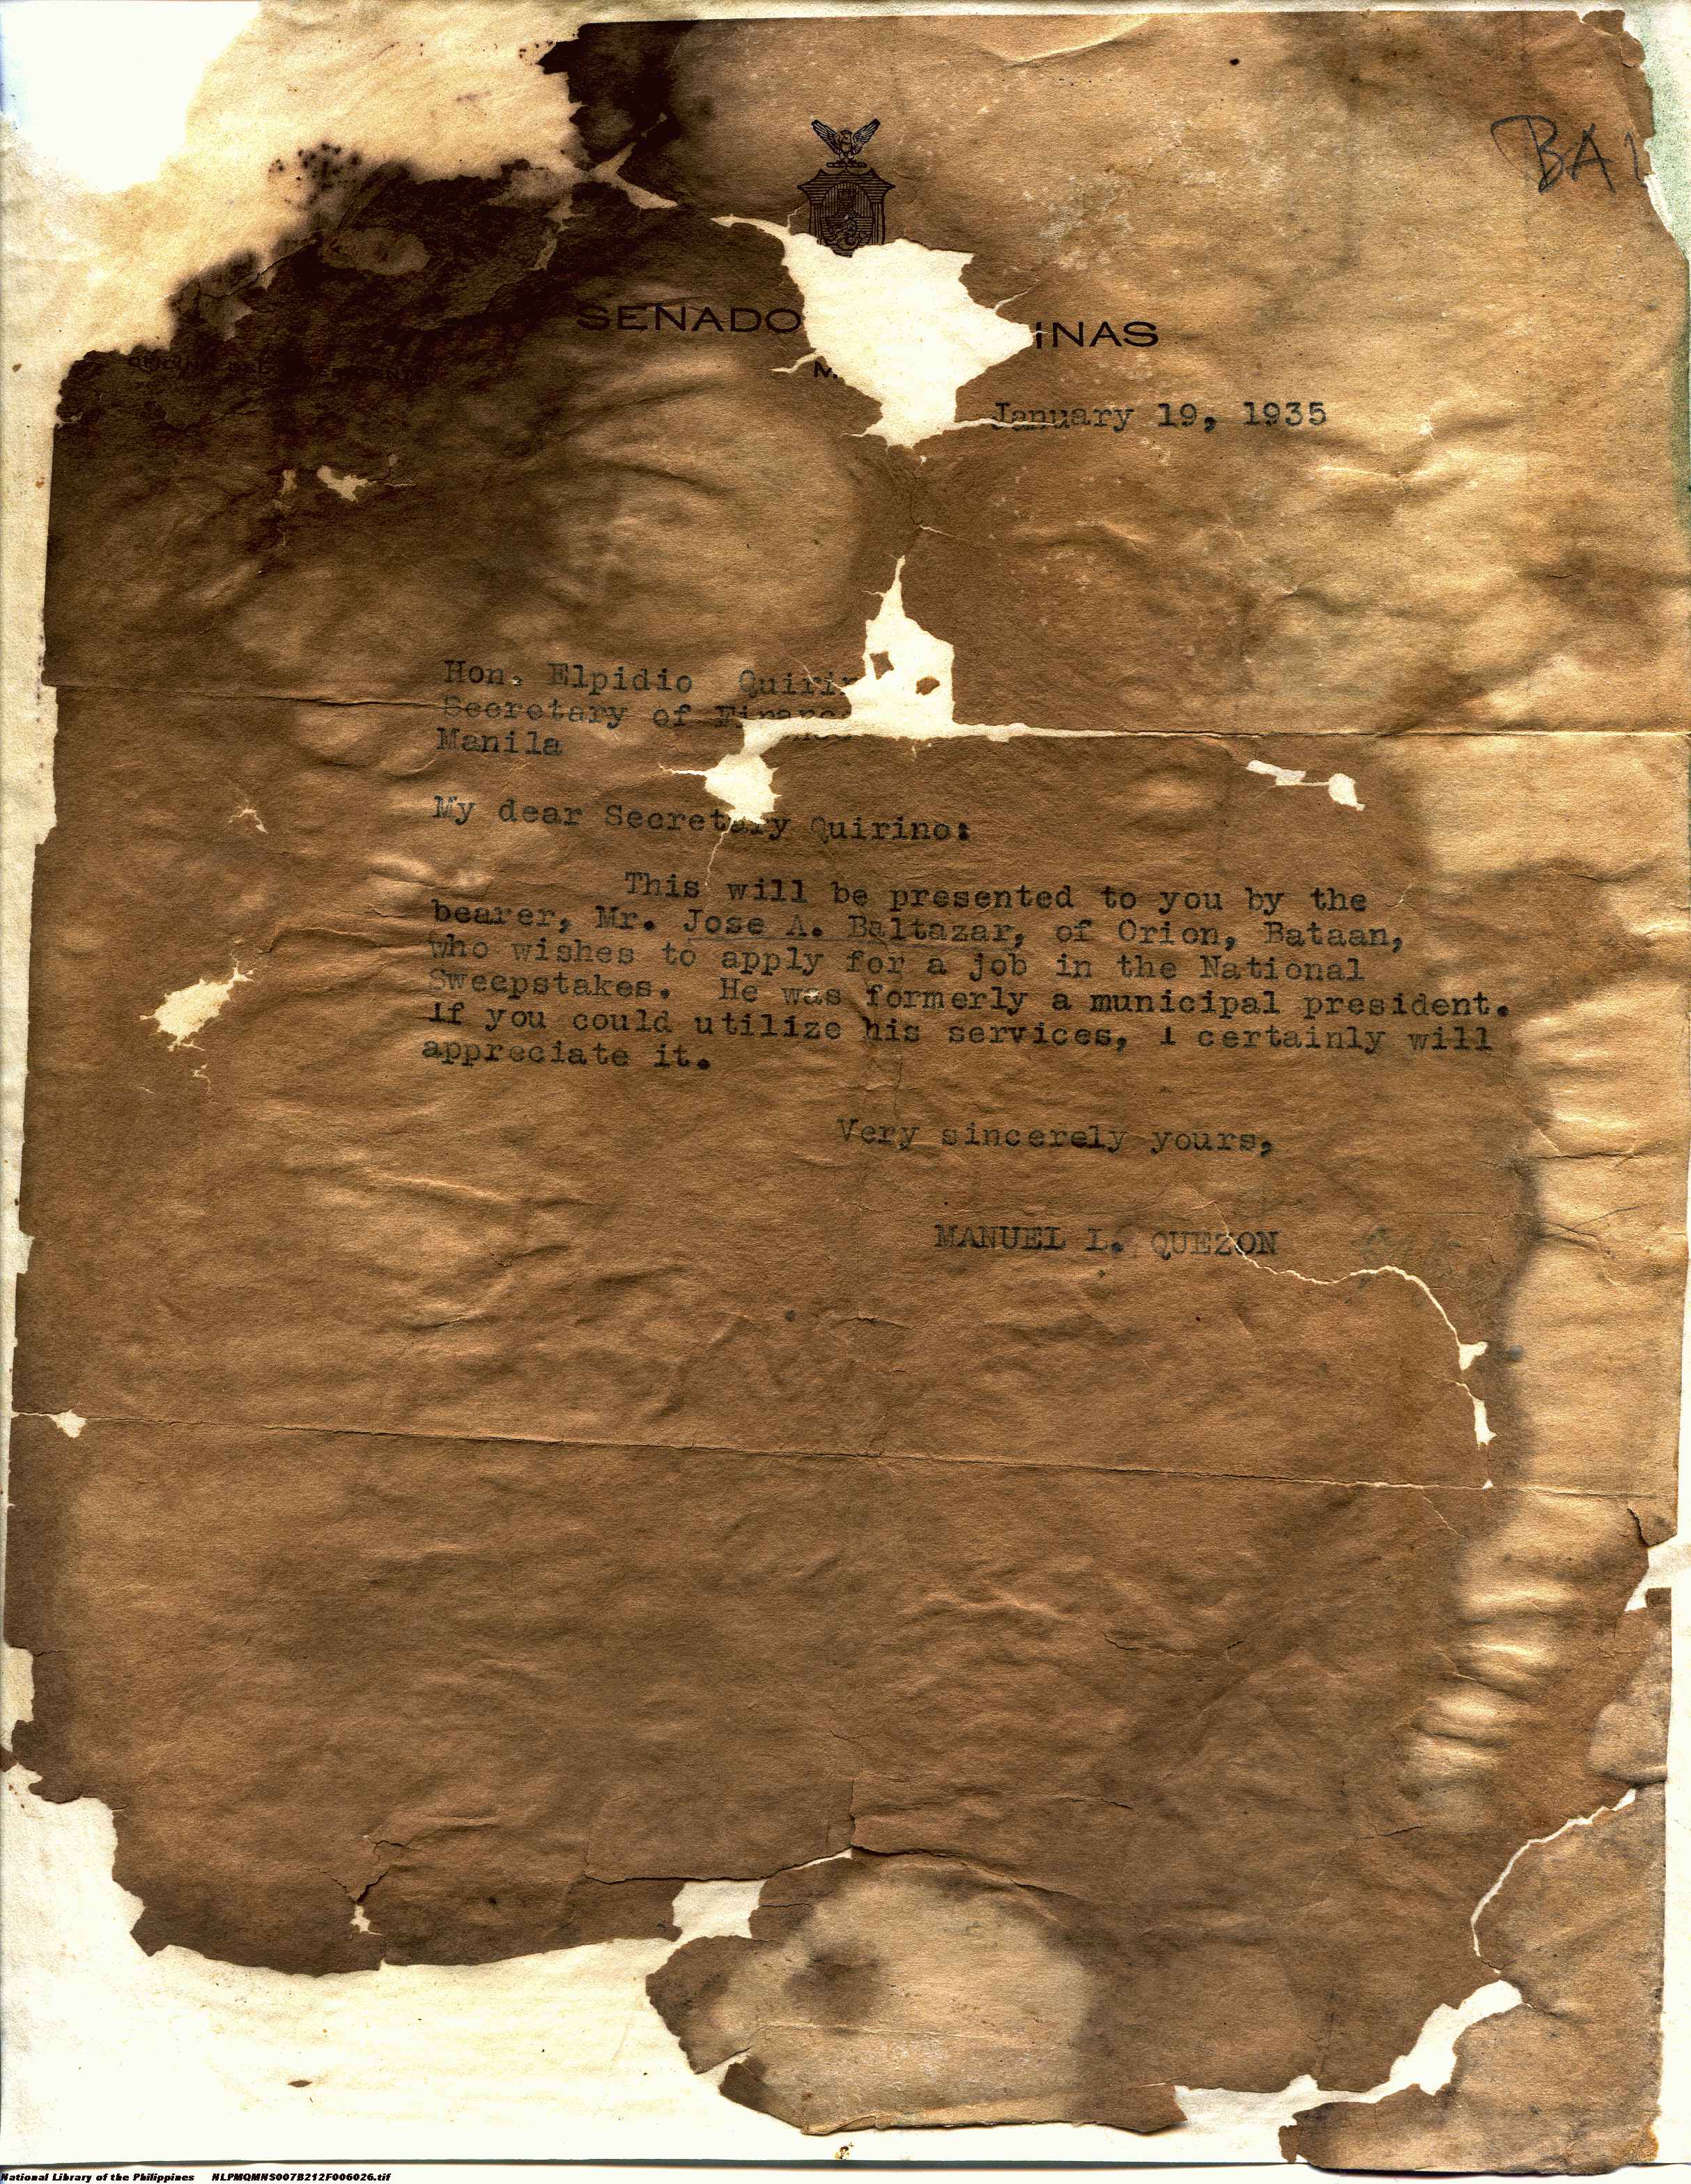 BA
SENADO INAS
M
January 19, 1935
Hon. Elpidio Quirin
Secretary of Finance
Manila
My dear Secretary Quirino:
This will be presented to you by the
bearer, Mr. Jose A. Baltazar, of Orion, Bataan,
who wishes to apply for a job in the National
Sweepstakes. He was formerly a municipal president.
If you could utilize his services, I certainly will
appreciate it.
Very sincerely yours,
MANUEL L. QUEZON
National Library of the Philippines NLPMQMNS007B212F006026.tif